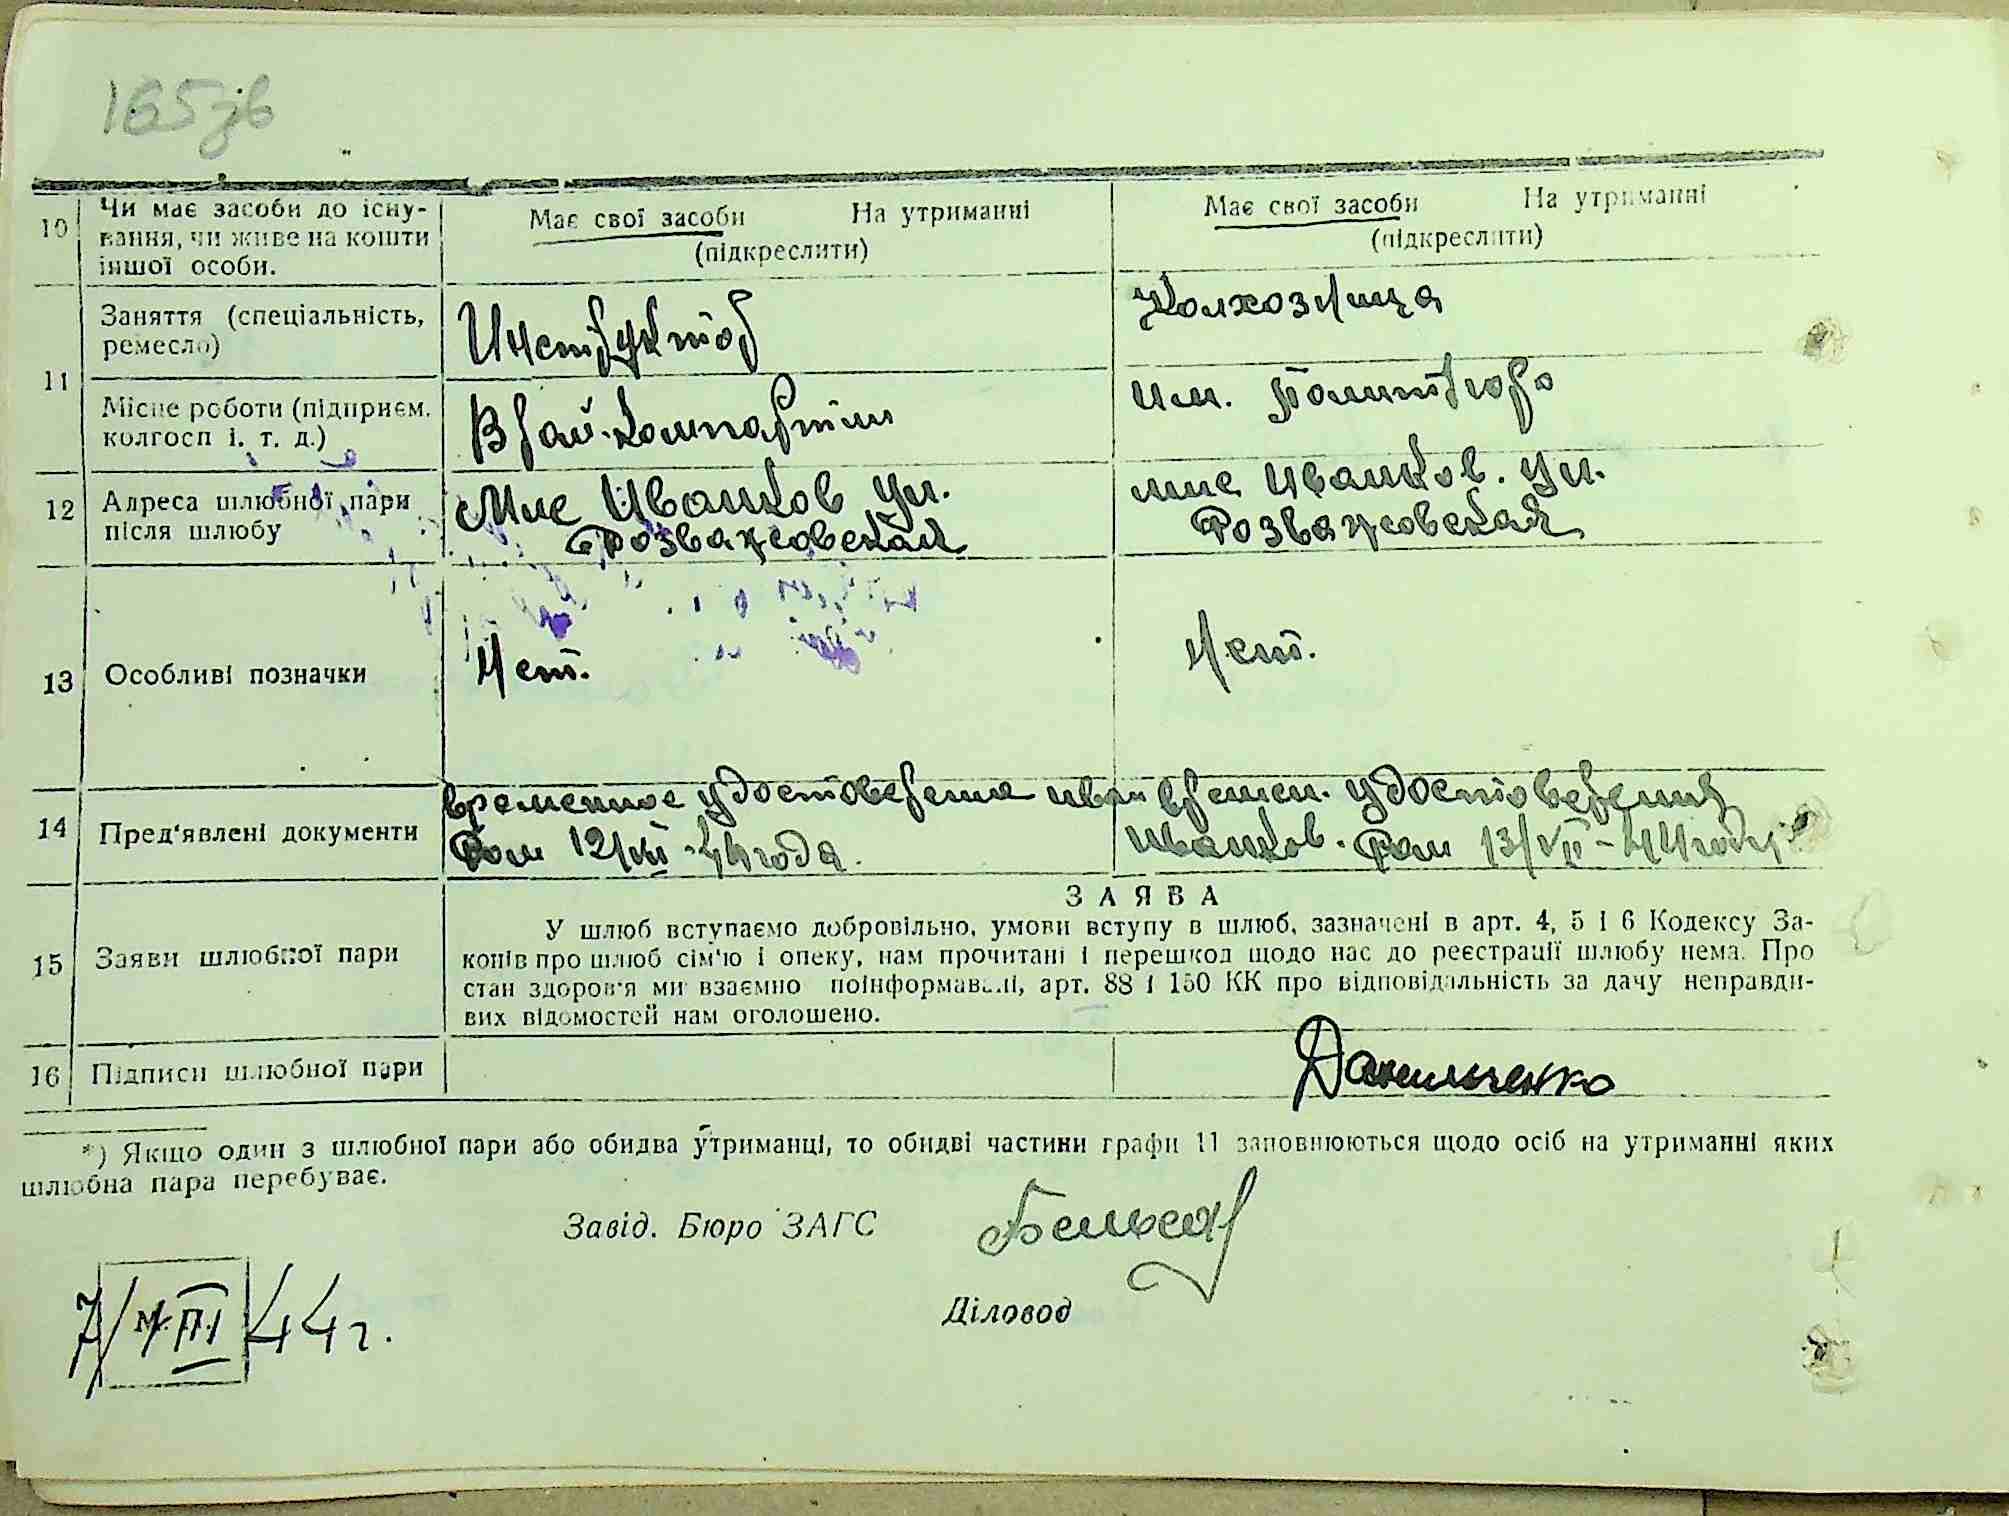 165зв
10 Чи має засоби до існу-
вання, чи живе на кошти
іншої особи.
Має свої засоби На утриманні
(підкреслити)
Має свої засоби На утриманні
(підкреслити)
11 Заняття (спеціальність,
ремесло)
Инструктор
Колхозница
Місце роботи (підприєм.
колгосп і. т. д.)
В рай.
им. Политбюро
12 Адреса шлюбної пари
після шлюбу
Мис Иванков ул.
Розважовская
мис Иванков. ул.
Розважовская
13 Особливі позначки
Нет.
Нет.
14 Пред'явлені документи
временное удостоверения иван
12/VII-44 года.
времен. удостоверения
Иванков. 13/VII-44 года
15 Заяви шлюбної пари
ЗАЯВА
У шлюб вступаємо добровільно, умови вступу в шлюб, зазначені в арт. 4, 5 і 6 Кодексу За-
конів про шлюб сім'ю і опеку, нам прочитані і перешкод щодо нас до реєстрації шлюбу нема. Про
стан здоров'я ми взаємно поінформавалі, арт. 88 і 150 КК про відповідальність за дачу неправди-
вих відомостей нам оголошено.
16 Підписи шлюбної пари
Данильченко
*) Якщо один з шлюбної пари або обидва утриманці, то обидві частини графи 11 заповнюються щодо осіб на утриманні яких
шлюбна пара перебуває.
Завід. Бюро ЗАГС
Діловод
М. П.
44 г.